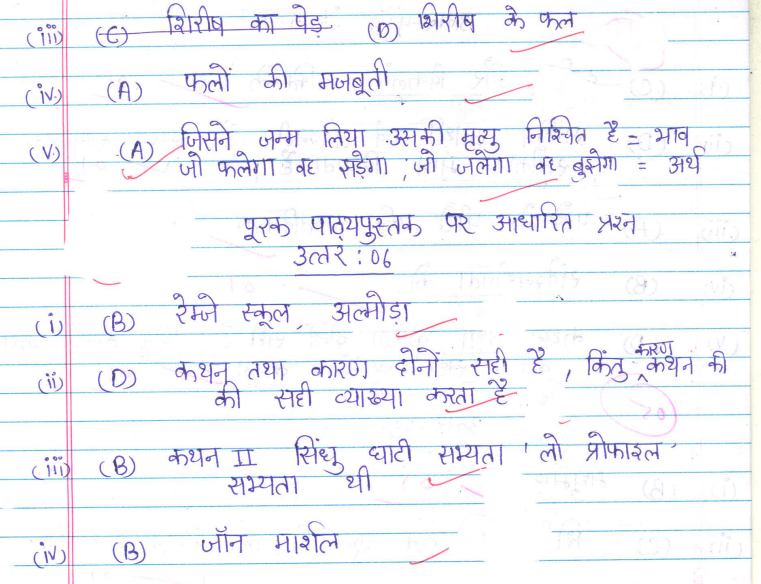 (iii) (C) शिरीष का पेड़ (D) शिरीष के फल
(iv) (A) फलों की मजबूती
(v) (A) जिसने जन्म लिया उसकी मृत्यु निश्चित है = भाव
जो फलेगा वह झड़ेगा, जो जलेगा वह बुझेगा = अर्थ
पूरक पाठ्यपुस्तक पर आधारित प्रश्न
उत्तर : 06
(i) (B) रेम्जे स्कूल, अल्मोड़ा
(ii) (D) कथन तथा कारण दोनों सही है, किंतु कारण कथन की
की सही व्याख्या करता है
(iii) (B) कथन II सिंधु घाटी सभ्यता 'लो प्रोफाइल'
सभ्यता थी
(iv) (B) जॉन मार्शल